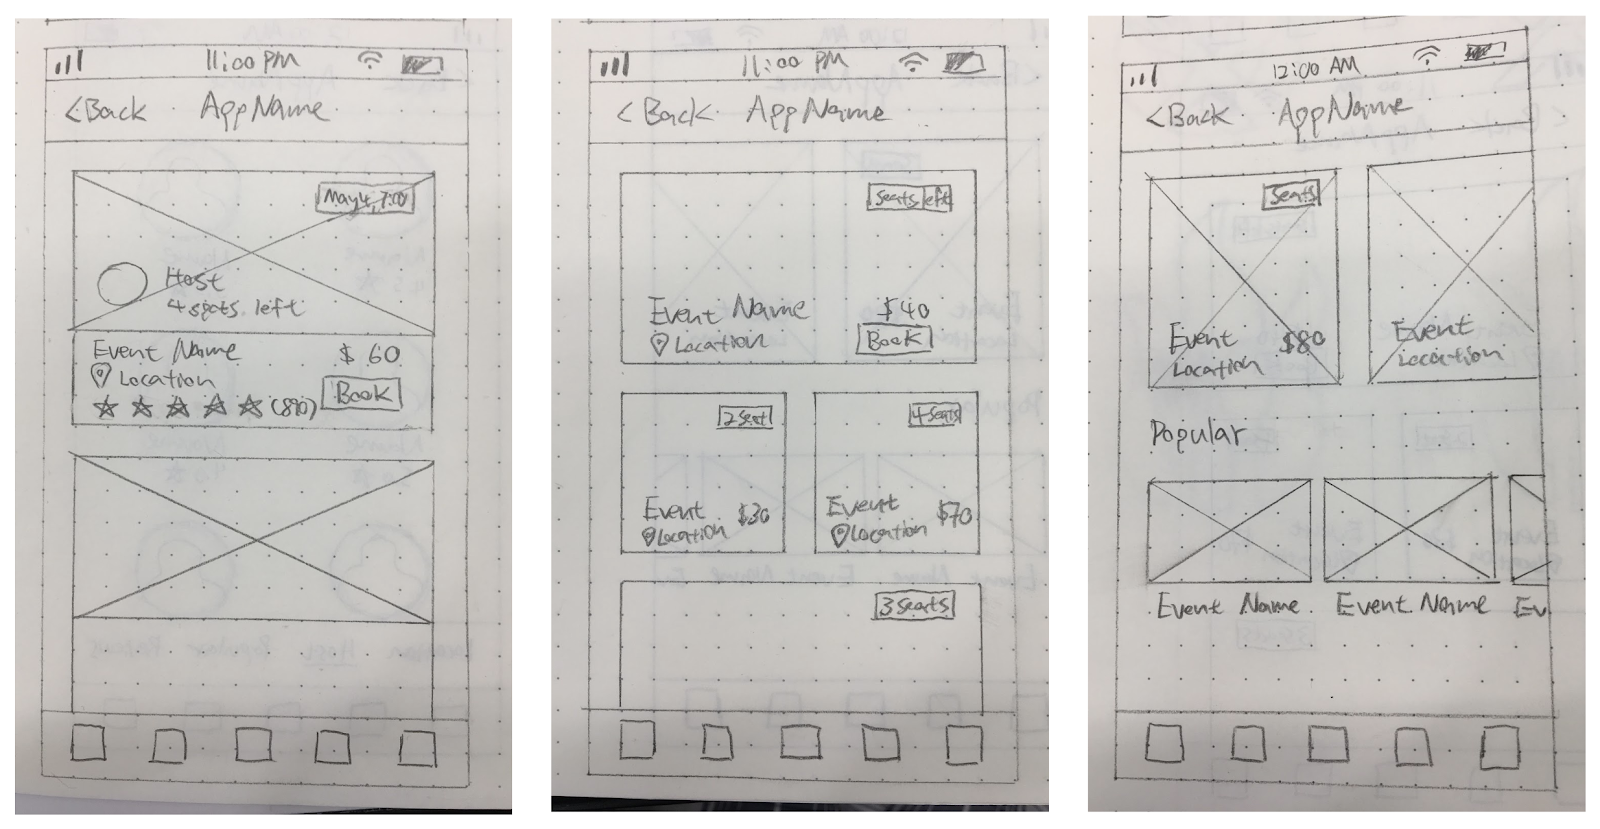 11:00 PM
<Back AppName
May 4, 7:00
Host
4 seats left
Event Name
$ 60
Location
Book
11:00 PM
<Back AppName
Seats left
Event Name
$40
Location
Book
2 Seat
Event
$30
Location
4 Seats
Event
$70
Location
3 Seats
12:00 AM
<Back AppName
Seats
Event
$80
Location
Event
Location
Popular
Event Name
Event Name
Ev